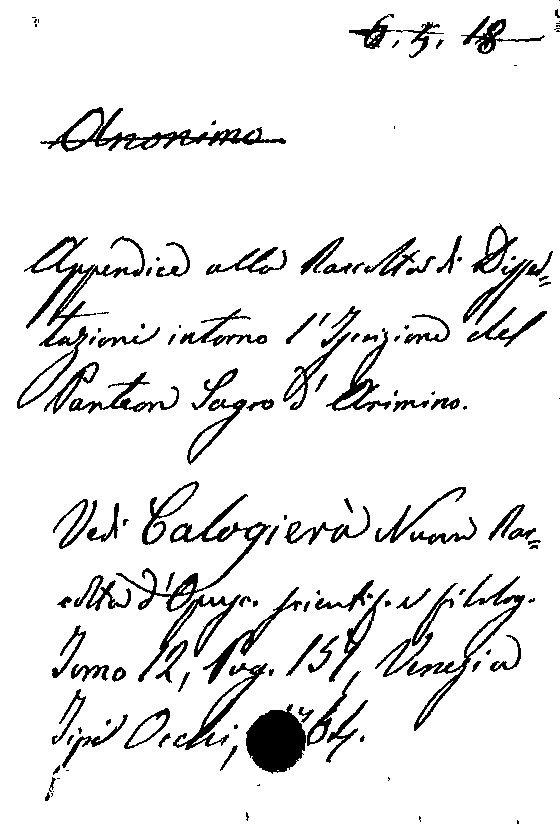 6. 5. 18
Anonimo
Appendice alla Raccolta di Dispu=
tazioni intorno l'Iscrizione del
Panteon Sagro d'Arimino.
Vedi Calogierà Nuova Rac=
colta d'Opusc. scientif. e filolog.
Tomo 12, Pag. 157, Venezia
Tipi Occhi, 1764.